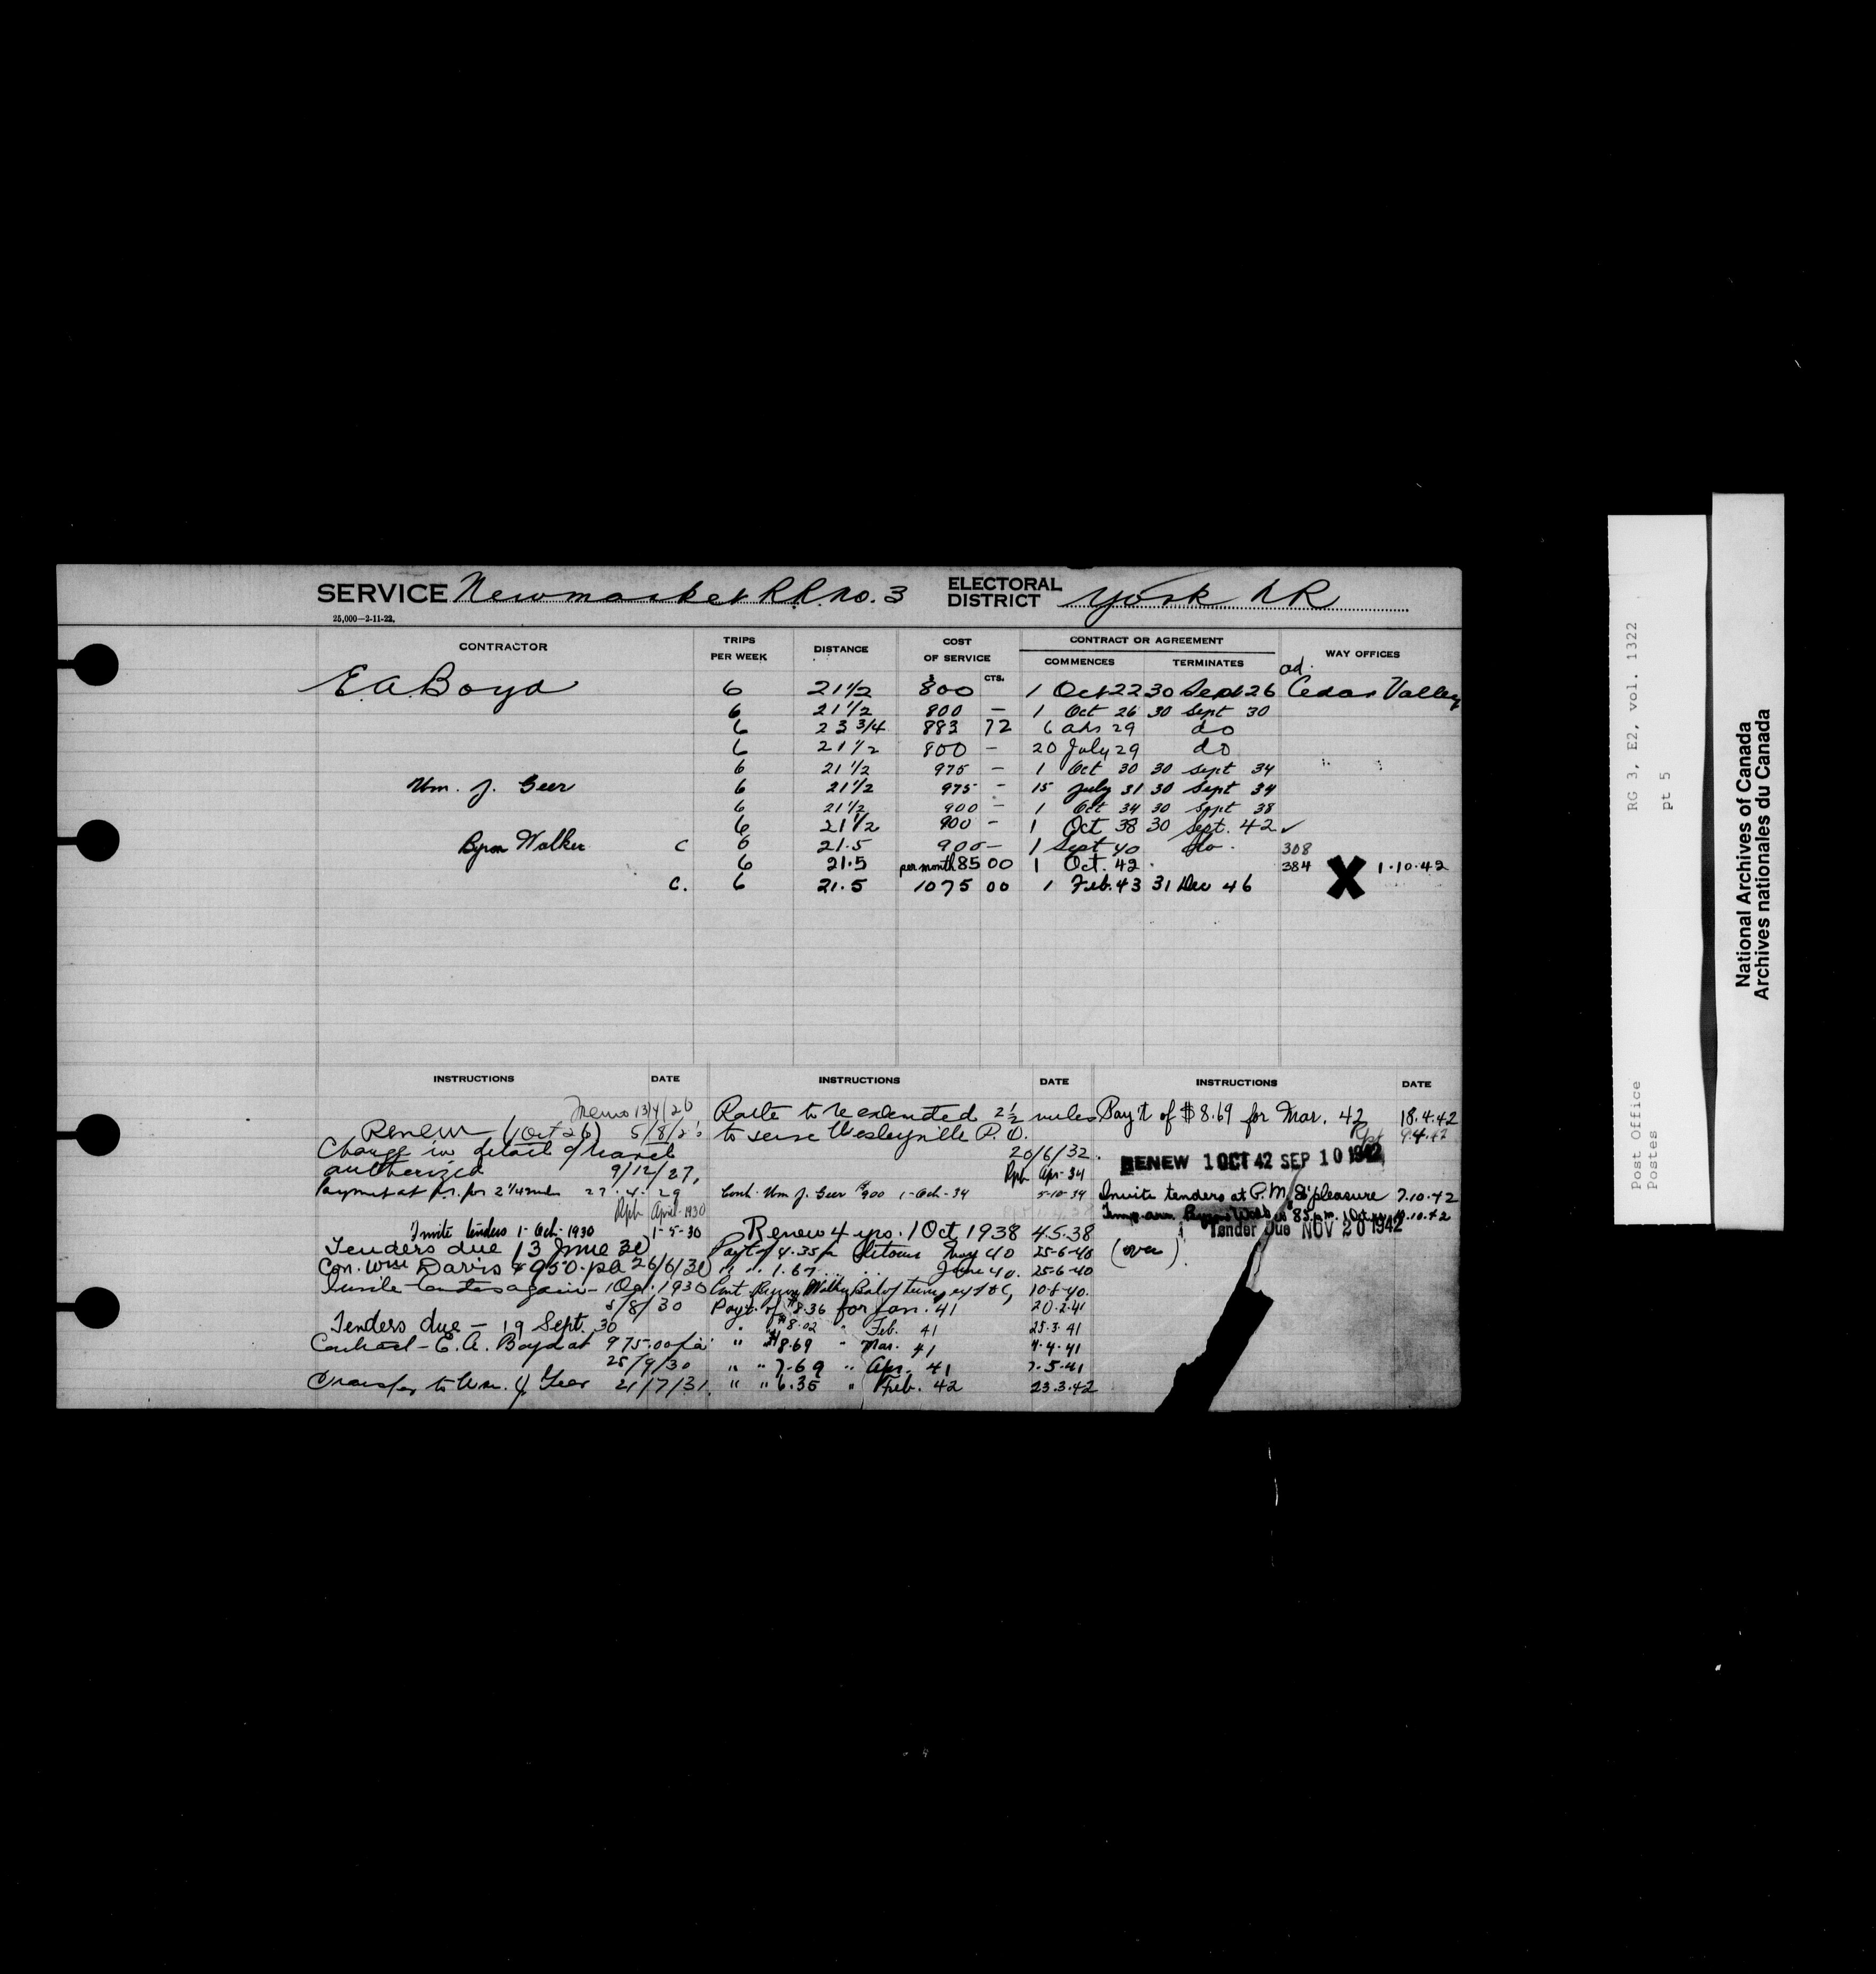 SERVICE Newmarket R.R. no. 3 ELECTORAL DISTRICT York NR
25,000—2-11-22.
CONTRACTOR TRIPS PER WEEK DISTANCE COST OF SERVICE CONTRACT OR AGREEMENT COMMENCES TERMINATES WAY OFFICES
$ CTS. ad.
E.A. Boyd 6 21 1/2 800 1 Oct 22 30 Sept 26 Cedar Valley
6 21 1/2 800 — 1 Oct 26 30 Sept 30
6 23 3/4 883 72 6 29 do
6 21 1/2 800 - 20 July 29 do
6 21 1/2 975 — 1 Oct 30 30 Sept 34
Wm. J. Geer 6 21 1/2 975 - 15 July 31 30 Sept 34
6 21 1/2 900 - 1 Oct 34 30 Sept 38
6 21 1/2 900 - 1 Oct 38 30 Sept. 42 ✓
Byron Walker C 6 21.5 900 — 1 Sept 40 do. 308
6 21.5 per month 85 00 1 Oct. 42 384 X 1.10.42
C. 6 21.5 1075 00 1 Feb. 43 31 Dec 46
INSTRUCTIONS DATE
Memo 13/4/26
Renew (1 Oct 26) 5/8/26
Change in detail of travel
authorized 9/12/27
Payment at p.r. for 2 1/4 miles 27.4.29
Rpt April-1930
Invite tenders 1-Oct-1930 1-5-30
Tenders due 13 June 30
Con. Wm Davis $950. pa 26/6/30
Invite tenders again - 1 Oct. 1930
5/8/30
Tenders due — 19 Sept. 30
Contract - E.A. Boyd at 975.00 pa
25/9/30
Transfer to Wm. J. Geer 21/7/31
INSTRUCTIONS DATE
Route to be extended 2 1/2 miles
to serve Wesleyville P.O.
20/6/32.
Rpt Apr-34
Cont. Wm J. Geer $900 1-Oct-34 5-10-34
Renew 4 yrs. 1 Oct 1938 4.5.38
Payt of 4.35 for detour May 40 25-6-40
" " 1.67 June 40. 25-6-40
Cont Byron Walker Bal of term 10-8-40.
Payt. of $8.36 for Jan. 41 20.2.41
" " $8.02 " Feb. 41 25.3.41
" $8.69 " Mar. 41 4.4.41
" " 7.69 " Apr. 41 7.5.41
" " 6.35 " Feb. 42 23.3.42
INSTRUCTIONS DATE
Pay't of $8.69 for Mar. 42 18.4.42
Rpt 9.4.42
RENEW 1 OCT 42 SEP 10 1942
Invite tenders at P.M.G's pleasure 7.10.42
Temp. arr. Byron 85 p.m. 1 Oct 10.10.42
Tender Due NOV 20 1942
(over)
RG 3, E2, vol. 1322
pt 5
Post Office
Postes
National Archives of Canada
Archives nationales du Canada